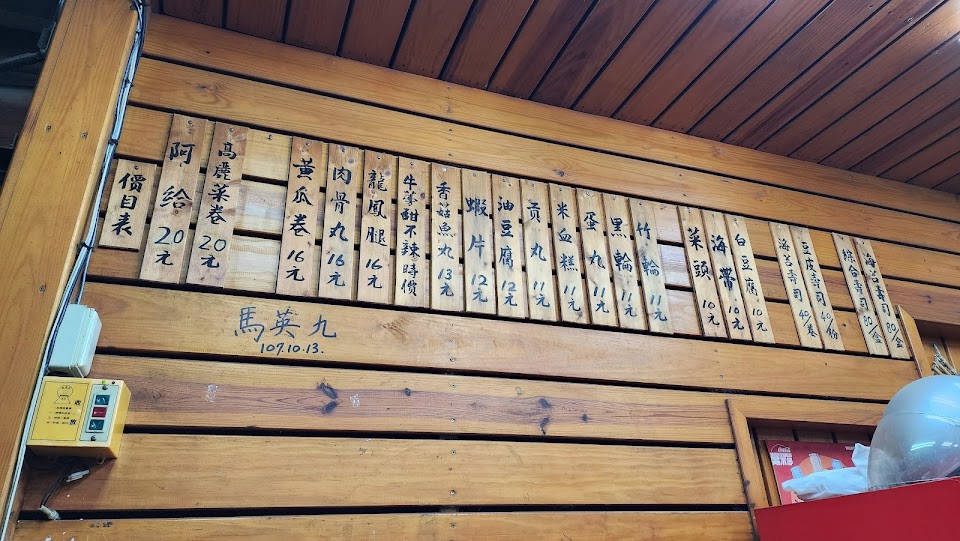 價目表
阿給20元
高麗菜卷20元
黃瓜卷16元
肉骨丸16元
龍鳳腿16元
牛蒡甜不辣時價
香菇魚丸13元
蝦片12元
油豆腐12元
貢丸11元
米血糕11元
蛋丸11元
黑輪11元
竹輪11元
菜頭10元
海帶10元
白豆腐10元
海苔壽司40/卷
豆皮壽司40/份
綜合壽司80/盒
海苔壽司80/盒
馬英九
107.10.13.